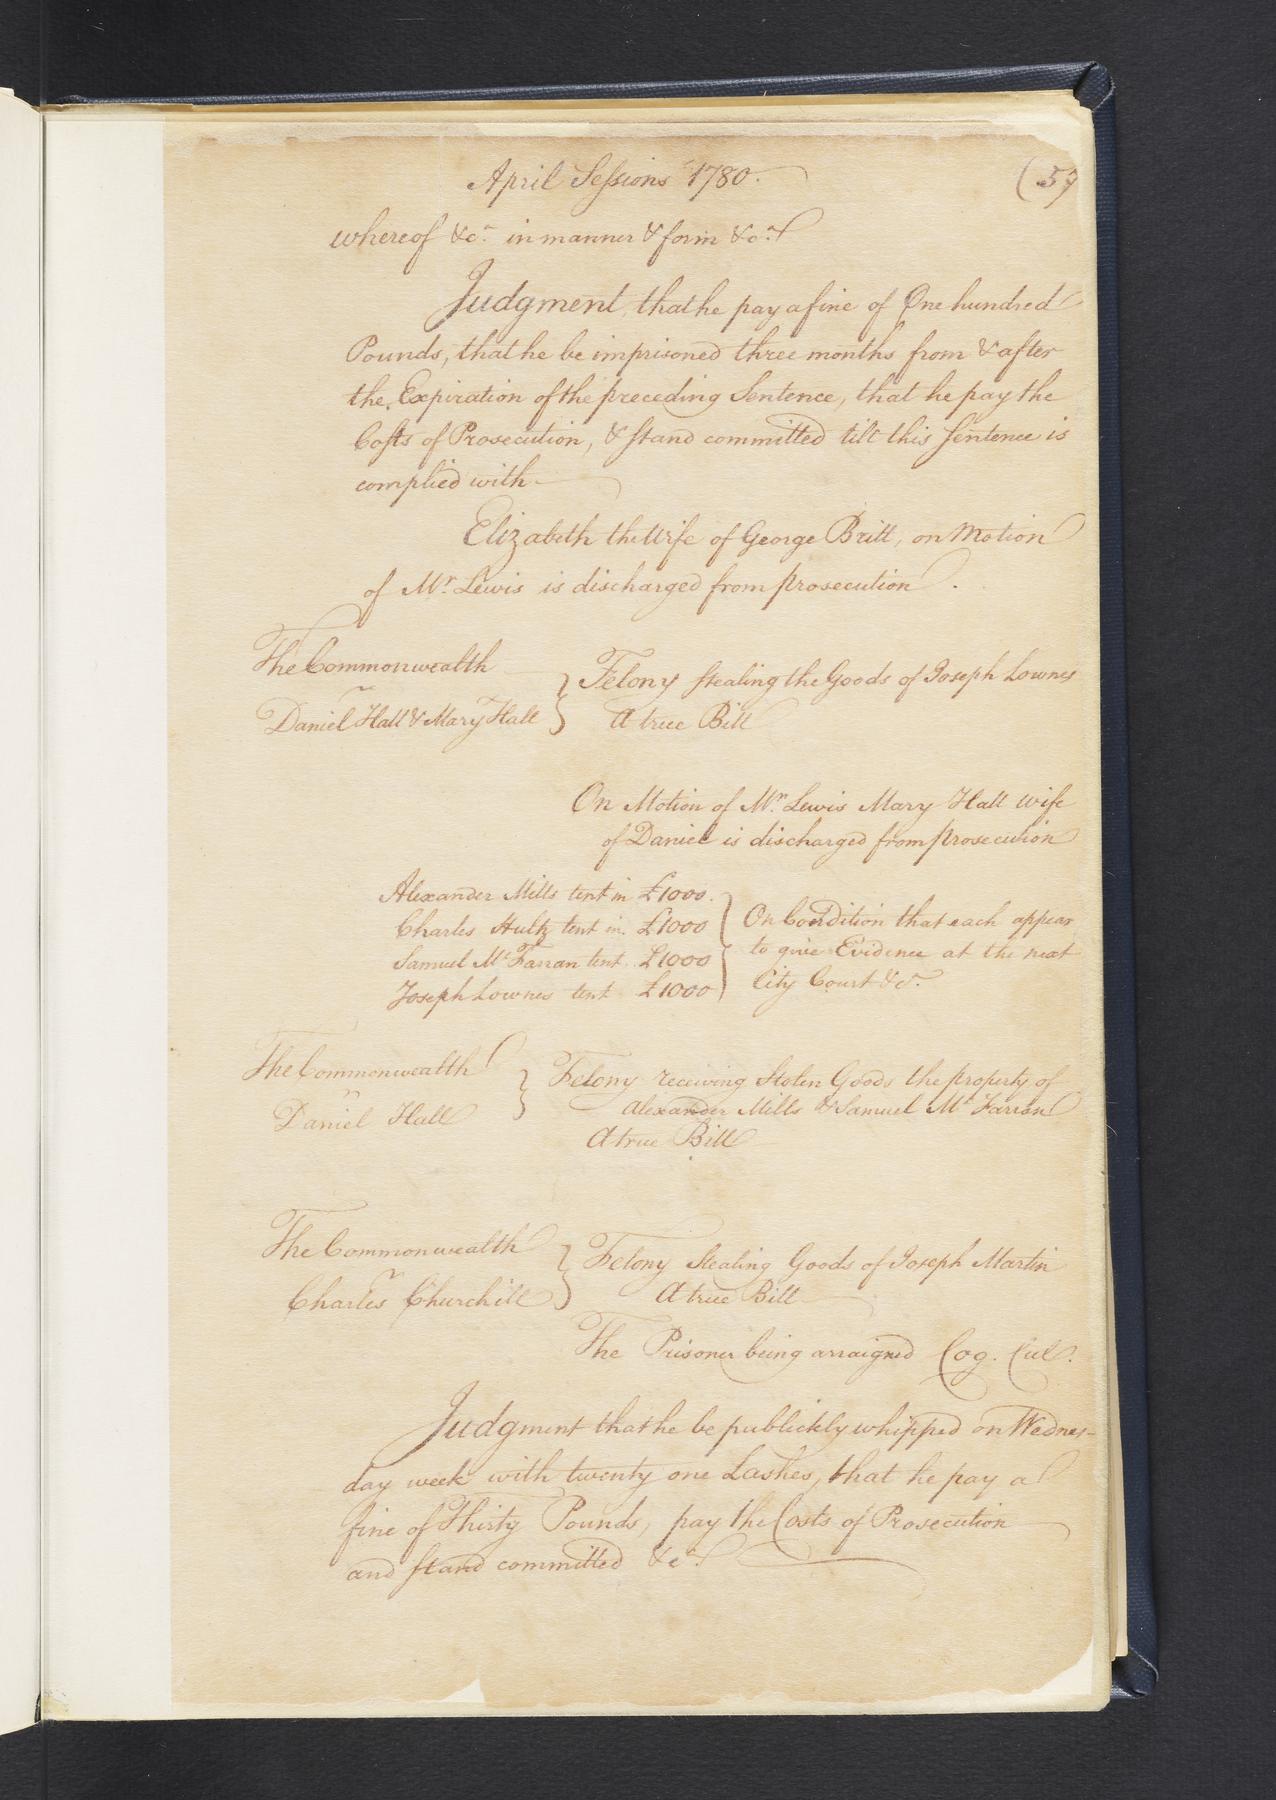 April Sessions 1780.
(57
whereof &c.a in manner & form &c.a
Judgment, that he pay a fine of One hundred
Pounds, that he be imprisoned three months from & after
the Expiration of the preceding Sentence, that he pay the
Costs of Prosecution, & stand committed till this Sentence is
complied with
Elizabeth the Wife of George Britt, on Motion
of Mr. Lewis is discharged from prosecution.
The Commonwealth
v
Daniel Hall & Mary Hall
Felony stealing the Goods of Joseph Lownes
A true Bill
On Motion of Mr. Lewis Mary Hall wife
of Daniel is discharged from prosecution
Alexander Mills tent in £1000.
Charles Hultz tent in. £1000
Samuel McFarran tent. £1000
Joseph Lownes tent £1000
On Condition that each appear
to give Evidence at the next
City Court &c.
The Commonwealth
v
Daniel Hall
Felony receiving Stolen Goods the property of
Alexander Mills & Samuel McFarran
A true Bill
The Commonwealth
v
Charles Churchill
Felony Stealing Goods of Joseph Martin
A true Bill
The Prisoner being arraigned Cog. Cul.
Judgment that he be publickly whipped on Wednes-
day week with twenty one Lashes, that he pay a
fine of Thirty Pounds, pay the Costs of Prosecution
and stand committed &c.